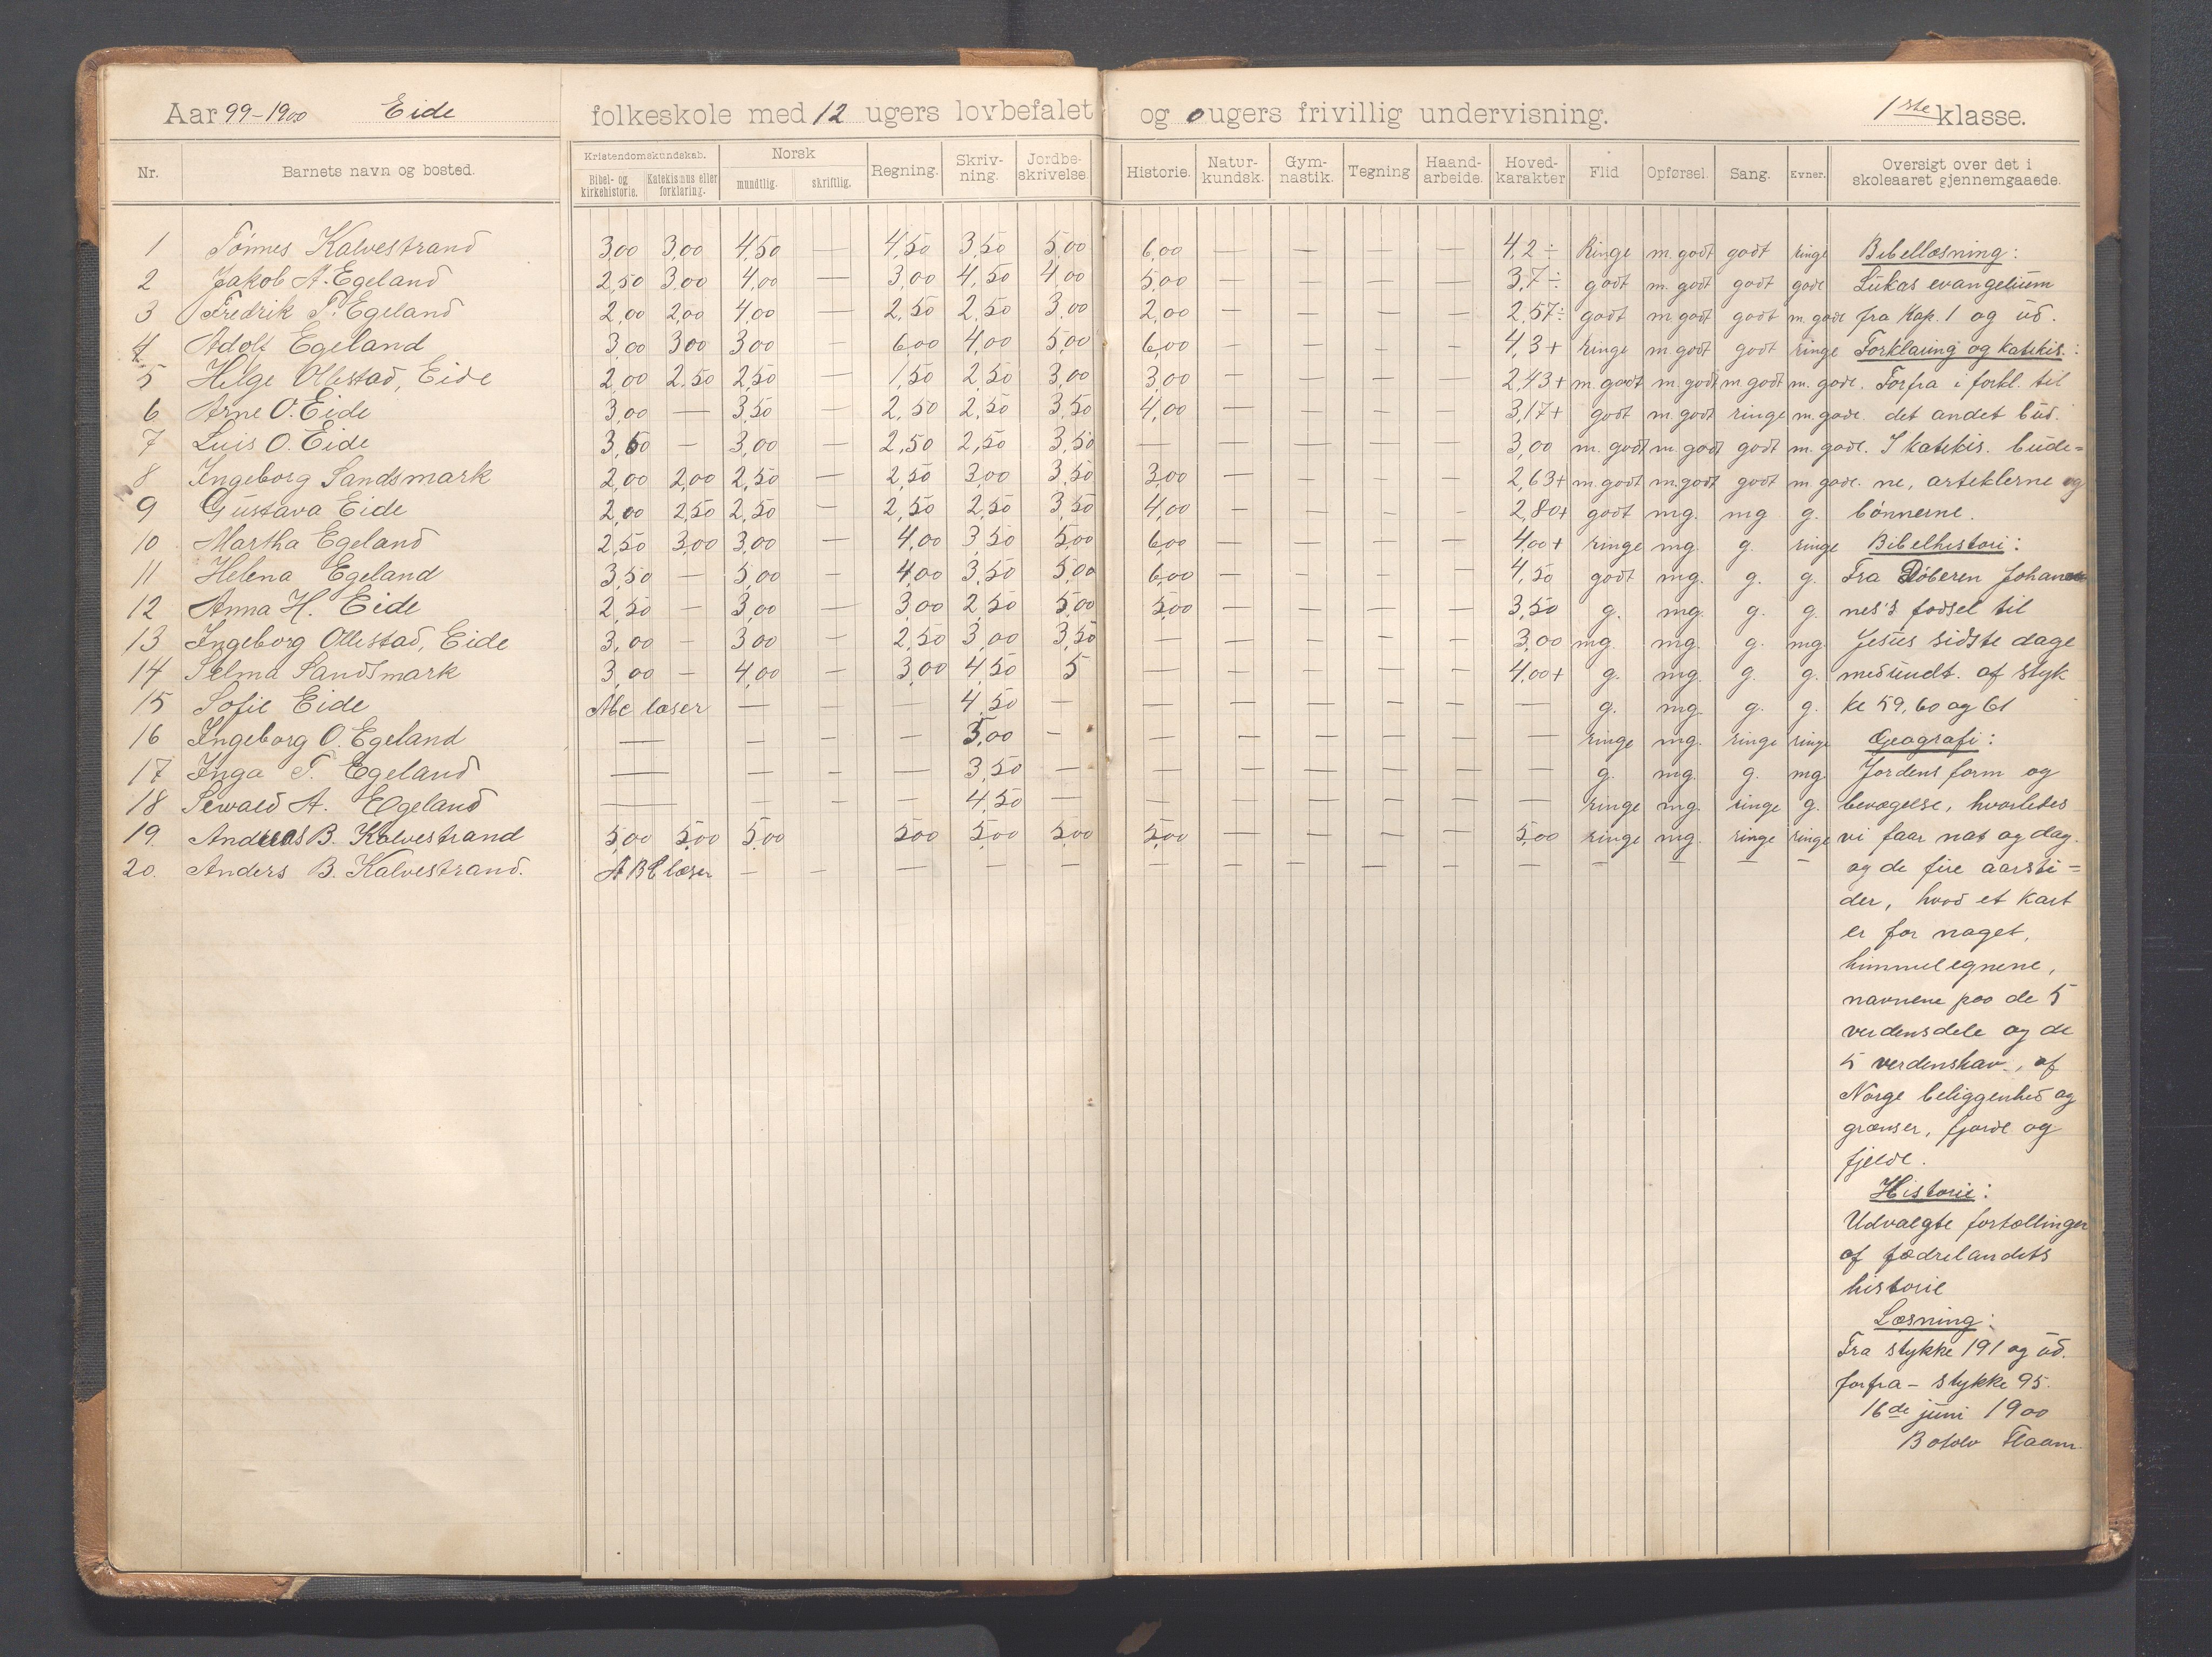 Aar 99-1900 Eide folkeskole med 12 ugers lovbefalet og 0 ugers frivillig undervisning. 1ste klasse.
Nr. Barnets navn og bosted. Kristendomskundskab. Bibel- og kirkehistorie. Katekismus eller forklaring. Norsk mundtlig. skriftlig. Regning. Skriv-ning. Jordbe-skrivelse. Historie. Natur-kundsk. Gym-nastik. Tegning Haand-arbeide. Hoved-karakter Flid Opførsel. Sang. Evner. Oversigt over det i skoleaaret gjennemgaaede.
1 Tønnes Kalvestrand 3,00 3,00 4,50 — 4,50 3,50 5,00 6,00 — — — — 4,2÷ Ringe m.godt godt ringe Bibellæsning:
2 Jakob A. Egeland 2,50 3,00 4,00 — 3,00 4,50 4,00 5,00 — — — — 3,7÷ godt m.godt godt gode Lukas evangelium
3 Fredrik T. Egeland 2,00 2,00 4,00 — 2,50 2,50 3,00 2,00 — — — — 2,57÷ godt m.godt godt m.gode fra Kap. 1 og ud.
4 Adolf Egeland 3,00 3,00 3,00 — 6,00 4,00 5,00 6,00 — — — — 4,3+ ringe m.godt godt ringe Forklaring og katekis.:
5 Helge Ollestad, Eide 2,00 2,50 2,50 — 1,50 2,50 3,00 3,00 — — — — 2,43+ m.godt m.godt m.godt m.gode. Forfra i forkl. til
6 Arne O. Eide 3,00 — 3,50 — 2,50 2,50 3,50 4,00 — — — — 3,17+ godt m.godt ringe m.gode. det andet bud.
7 Luis O. Eide 3,50 — 3,00 — 2,50 2,50 3,50 — — — — — 3,00 m.godt m.godt godt m.gode. I katekis. bude=
8 Ingeborg Sandsmark 2,00 2,00 2,50 — 2,50 3,00 3,50 3,00 — — — — 2,63+ m.godt m.godt godt m.gode. ne, artiklerne og
9 Gustava Eide 2,00 2,50 2,50 — 2,50 2,50 3,50 4,00 — — — — 2,80+ godt mg. mg g. bønnerne.
10 Martha Egeland 2,50 3,00 3,00 — 4,00 3,50 5,00 6,00 — — — — 4,00+ ringe mg. g. ringe Bibelhistori:
11 Helena Egeland 3,50 — 5,00 — 4,00 3,50 5,00 6,00 — — — — 4,50 godt mg. g. g. Fra Døberen Johan
12 Anna H. Eide 2,50 — 3,00 — 3,00 2,50 5,00 5,00 — — — — 3,50 g. mg. g. g. nes's fødsel til
13 Ingeborg Ollestad, Eide 3,00 — 3,00 — 2,50 3,00 3,50 — — — — — 3,00 mg. mg. g. mg. Jesus sidste dage
14 Selma Sandsmark 3,00 — 4,00 — 3,00 4,50 5 — — — — — 4,00+ g. mg. g. g. medundt. af styk
15 Sofie Eide Abc læser — — — 4,50 — — — — — — — g. mg. g. g. ke 59, 60 og 61
16 Ingeborg O. Egeland — — — — 5,00 — — — — — — — ringe mg. ringe ringe Geografi:
17 Inga T. Egeland — — — — 3,50 — — — — — — — g. mg. g. mg. Jordens form og
18 Sewald A. Egeland — — — — 4,50 — — — — — — — ringe mg. ringe g. bevægelse, hvorledes
19. Andreas B. Kalvestrand 5,00 5,00 5,00 5,00 5,00 5,00 5,00 — — — — 5,00 ringe mg. ringe ringe vi faar nat og dag.
20. Anders B. Kalvestrand. ABC læser — — — — — — — — — — — — — — og de fire aarsti=
der, hvad et kart
er for noget,
himmelegnene,
navnene paa de 5
verdensdele og de
5 verdenshav., af
Norge beliggenhed og
grænser, fjorde og
fjelde.
Historie:
Udvalgte fortællinger
af fædrelandets
historie
Læsning:
Fra stykke 191 og ud.
forfra - stykke 95.
16de juni 1900
Botolv Flaam.